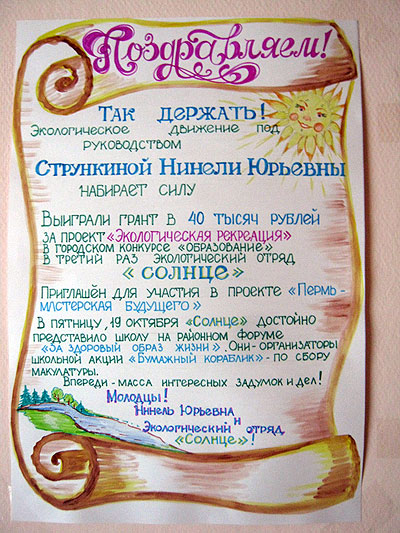 Поздравляем!
Так держать!
Экологическое движение под
руководством
Стрункиной Нинели Юрьевны
набирает силу
Выиграли грант в 40 тысяч рублей
за проект «Экологическая рекреация»
в городском конкурсе «Образование»
в третий раз экологический отряд
«Солнце»
Приглашён для участия в проекте «Пермь-
мастерская будущего»
В пятницу, 19 октября «Солнце» достойно
представило школу на районном форуме
«За здоровый образ жизни». Они-организаторы
школьной акции «Бумажный кораблик»- по сбору
макулатуры.
Впереди-масса интересных задумок и дел!
Молодцы!
Нинель Юрьевна
и
Экологический отряд
«Солнце»!